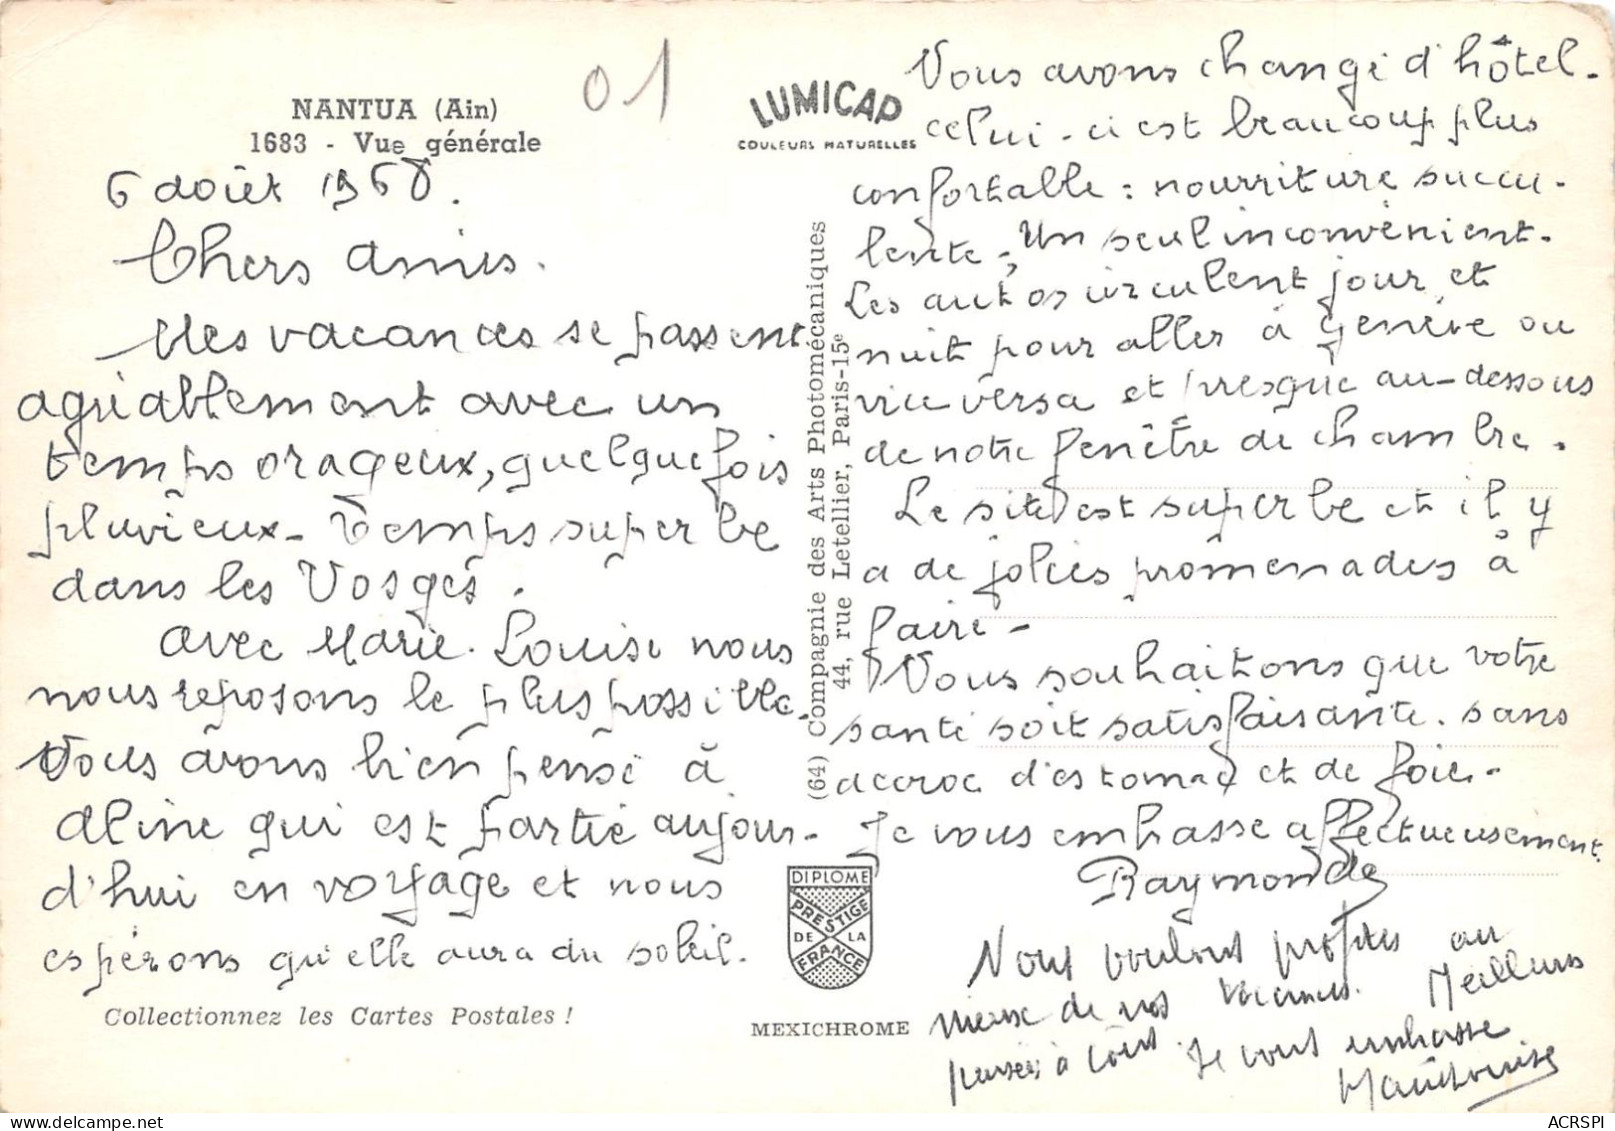 NANTUA (Ain)
1683 - Vue générale
01
LUMICAP
COULEURS NATURELLES
6 août 1968.
Chers Amis.
Mes vacances se passent
agréablement avec un
temps orageux, quelquefois
pluvieux - Temps superbe
dans les Vosges.
Avec Marie-Louise nous
nous reposons le plus possible.
Nous avons bien pensé à
Aline qui est partie aujour-
d'hui en voyage et nous
espérons qu'elle aura du soleil.
Collectionnez les Cartes Postales !
(64) Compagnie des Arts Photomécaniques
44, rue Letellier, Paris-15e
DIPLOME
PRESTIGE
DE LA
FRANCE
MEXICHROME
Nous avons changé d'hôtel.
celui-ci est beaucoup plus
confortable : nourriture succu-
lente. Un seul inconvénient.
Les autos circulent jour et
nuit pour aller à Genève ou
vice versa et presque au-dessous
de notre fenêtre de chambre.
Le site est superbe et il y
a de jolies promenades à
faire -
Nous souhaitons que votre
santé soit satisfaisante. sans
accroc d'estomac et de foie. -
Je vous embrasse affectueusement.
Raymonde
Nous voulons profiter au
mieux de nos vacances. Meilleurs
pensées à tous. Je vous embrasse
Marie Louise
ACRSPI